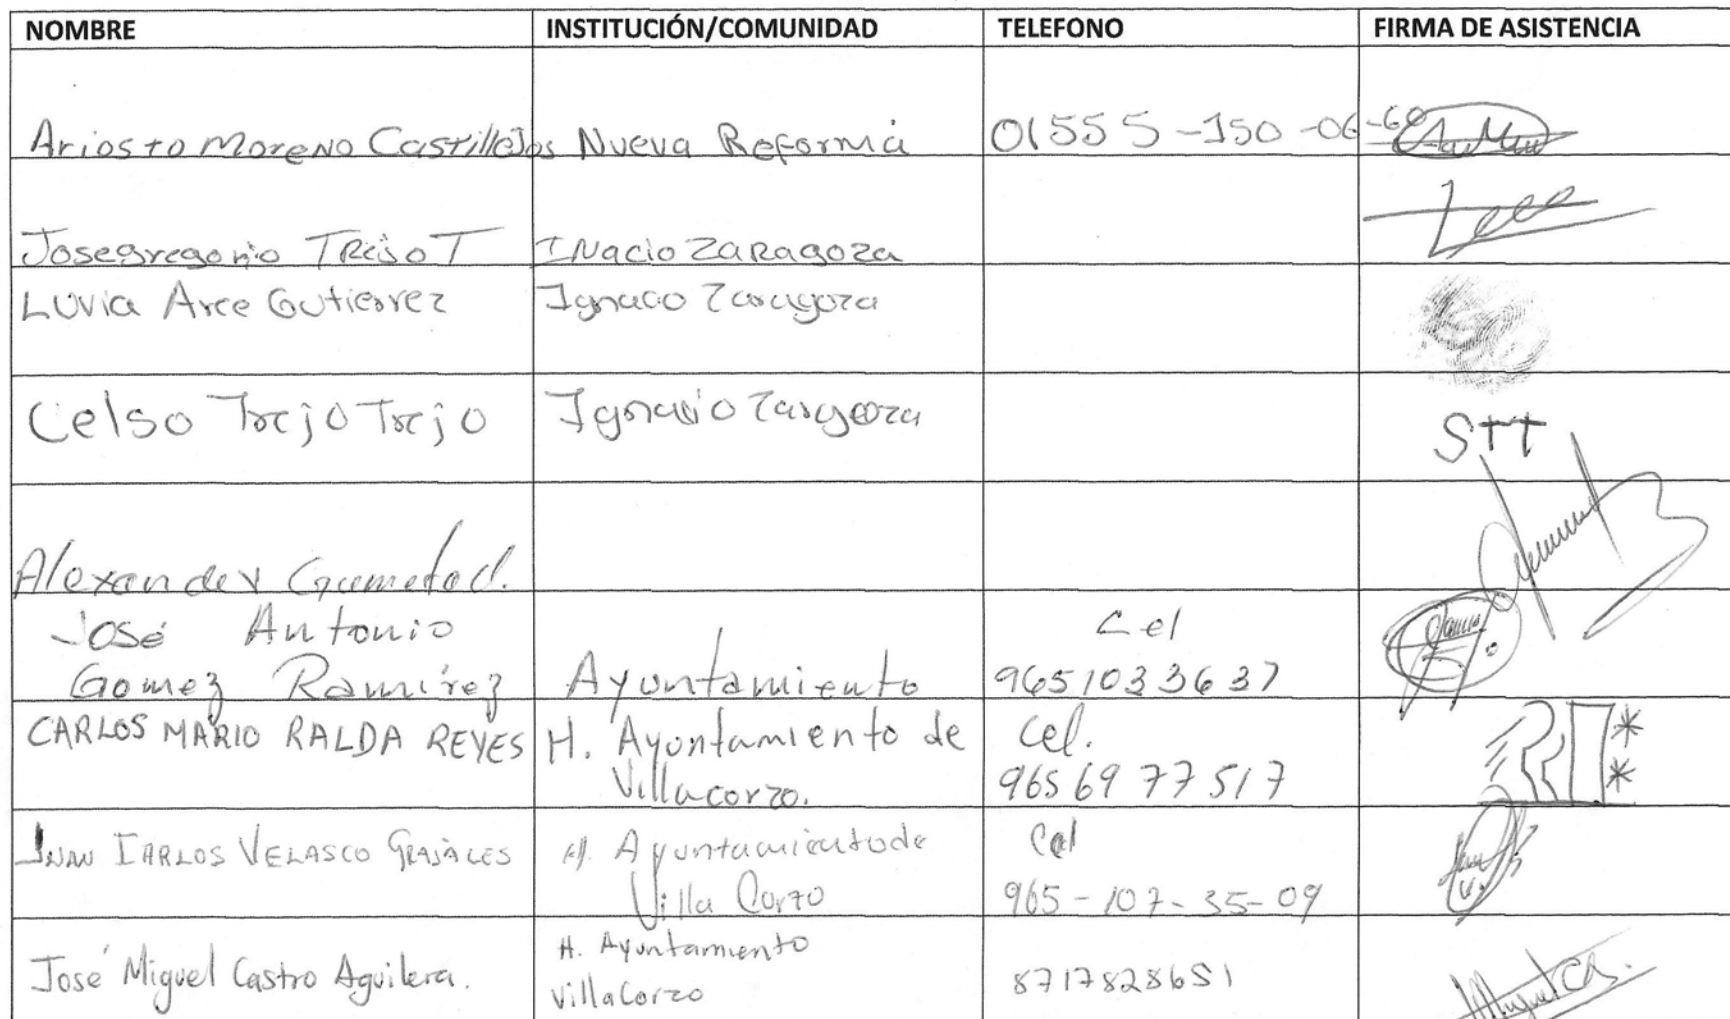 NOMBRE INSTITUCIÓN/COMUNIDAD TELEFONO FIRMA DE ASISTENCIA
Ariosto Moreno Castillejos Nueva Reforma 01555-150-06-60
Josegregorio Trejo T INacio Zaragoza
Luvia Arce Gutierrez Ignacio Zaragoza
Celso Trejo Trejo Ignacio Zaragoza STT
Alexander
José Antonio Cel
Gomez Ramírez Ayuntamiento 9651033637
CARLOS MARIO RALDA REYES H. Ayuntamiento de Cel.
Villacorzo. 965 69 77 517
JUAN CARLOS VELASCO GRAJALES H. Ayuntamiento de Cel
Villa Corzo 965-107-35-09
José Miguel Castro Aguilera. H. Ayuntamiento 8717828651
Villa Corzo